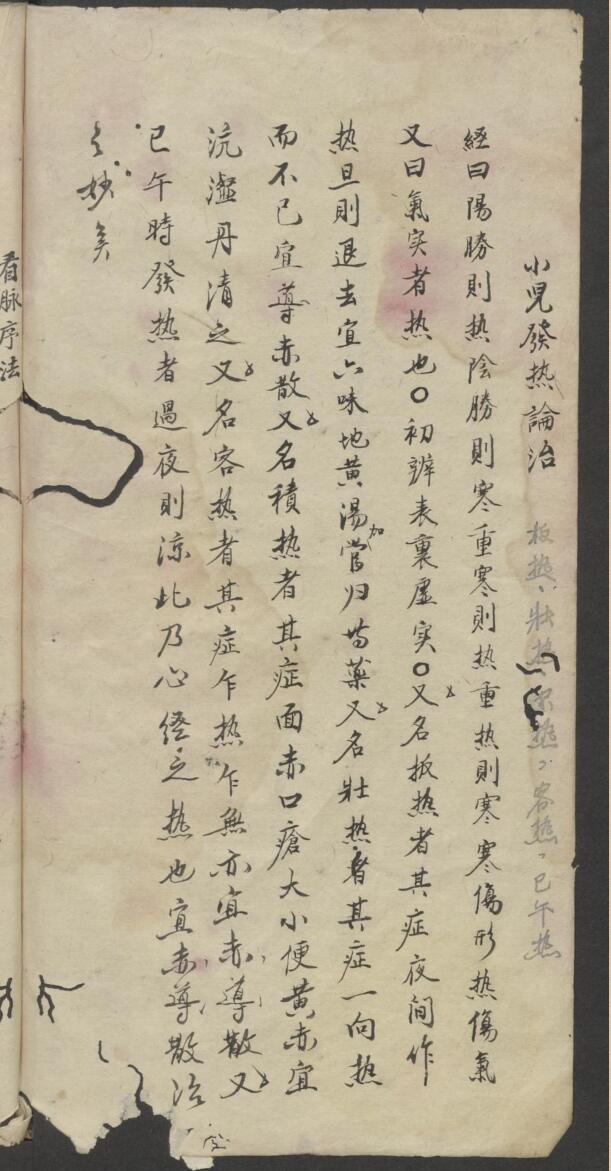 小児發热論治 板热 壯热 热 客热 巳午热
経曰陽勝則热陰勝則寒重寒則热重热則寒寒傷形热傷氣
又曰氣实者热也〇初辨表裏虛实〇又名板热者其症夜间作
热旦則退去宜六味地黄湯加當归芍藥又名壯热者其症一向热
而不已宜導赤散又名積热者其症面赤口瘡大小便黄赤宜
沆瀣丹清之又名客热者其症乍热乍無亦宜赤導散又
巳午時發热者過夜則凉此乃心經之热也宜赤導散治
之妙矣
看脉序法